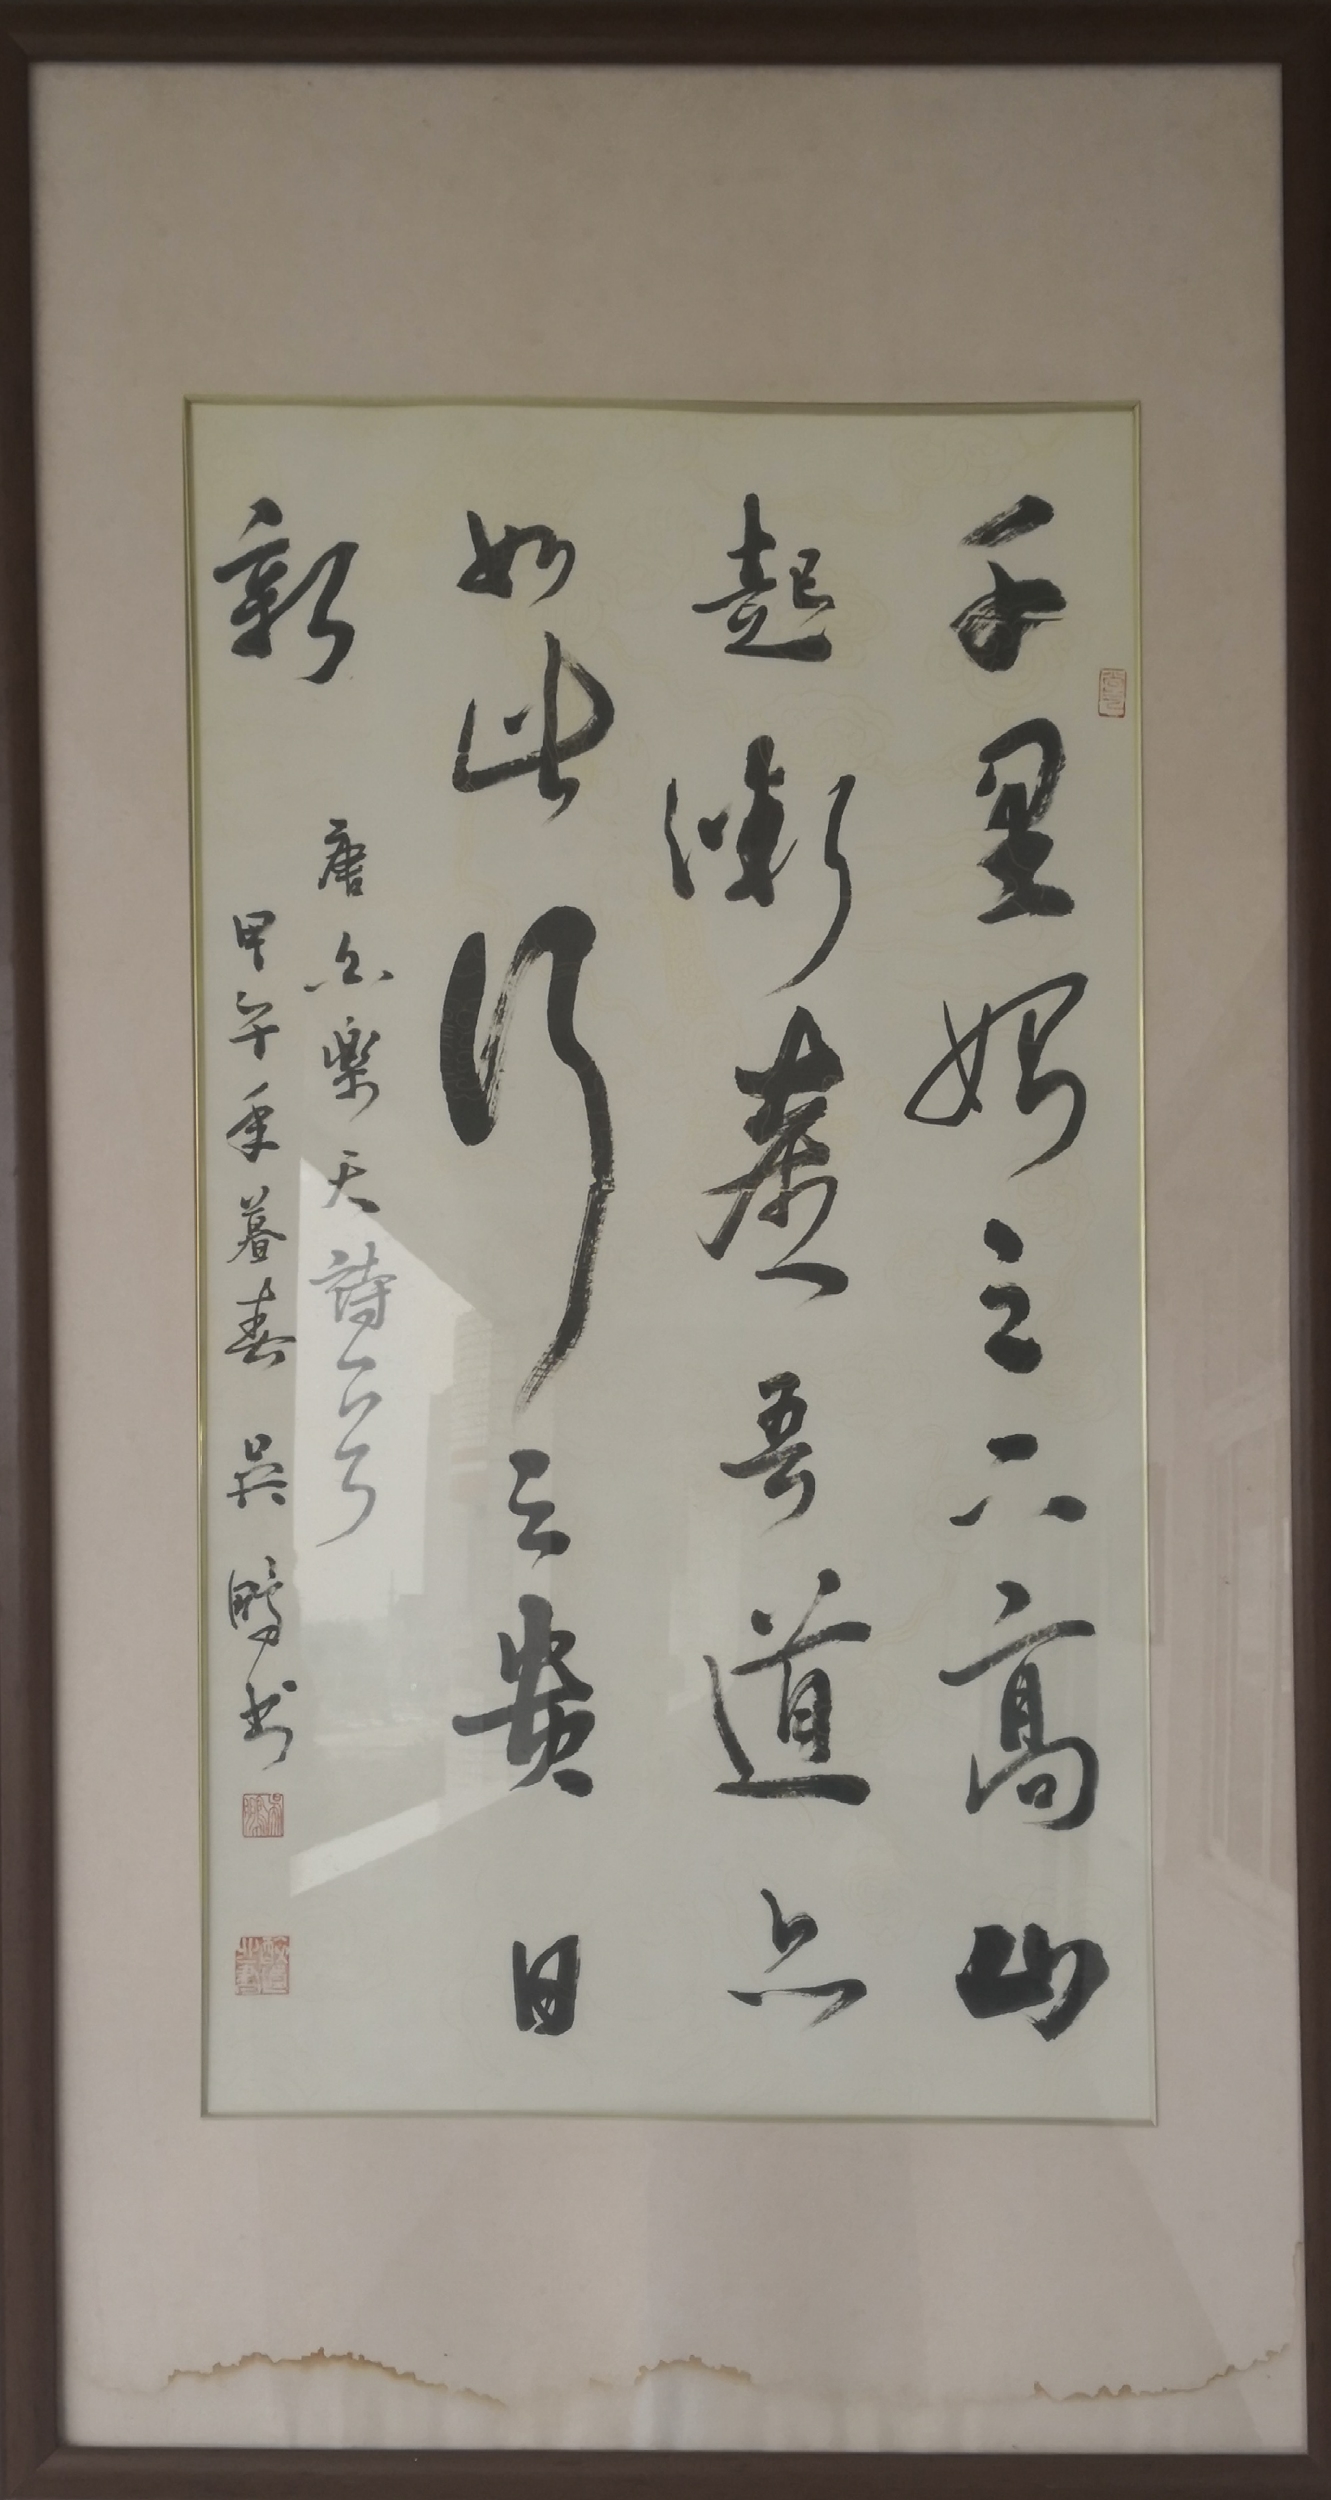 千里始足下高山
起微塵吾道亦
如此行之貴日
新
唐白樂天詩一首
甲午年暮春 吳鵬書